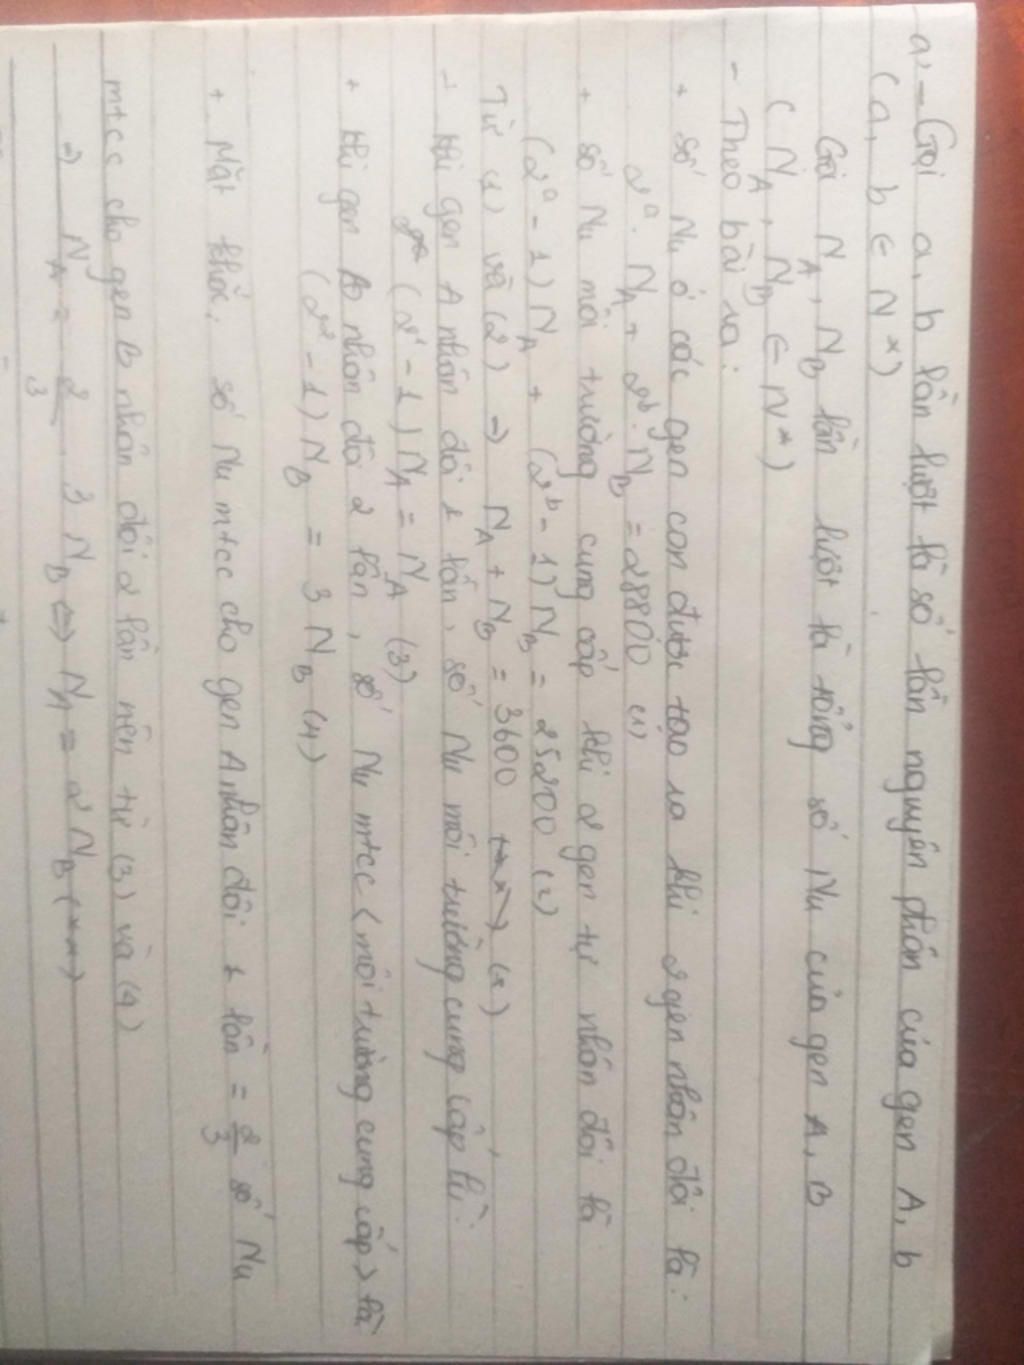 a, - Gọi a, b lần lượt là số lần nguyên phân của gen A, b
(a, b ∈ N*)
Gọi N_A, N_B lần lượt là tổng số Nu của gen A, B
(N_A, N_B ∈ N*)
- Theo bài ra:
+ số Nu ở các gen con được tạo ra khi 2 gen nhân đôi là:
2^a. N_A + 2^b. N_B = 28800 (1)
+ số Nu môi trường cung cấp khi 2 gen tự nhân đôi là
(2^a - 1) N_A + (2^b - 1) N_B = 25200 (2)
Từ (1) và (2) => N_A + N_B = 3600 (*)
- khi gen A nhân đôi 1 lần, số Nu môi trường cung cấp là:
(2^1 - 1) N_A = N_A (3)
+ khi gen B nhân đôi 2 lần, số Nu mtcc (môi trường cung cấp) là
(2^2 - 1) N_B = 3 N_B (4)
+ Mặt khác, số Nu mtcc cho gen A nhân đôi 1 lần = 2/3 số Nu
mtcc cho gen B nhân đôi 2 lần nên từ (3) và (4)
=> N_A = 2/3 . 3 N_B <=> N_A = 2 N_B (**)